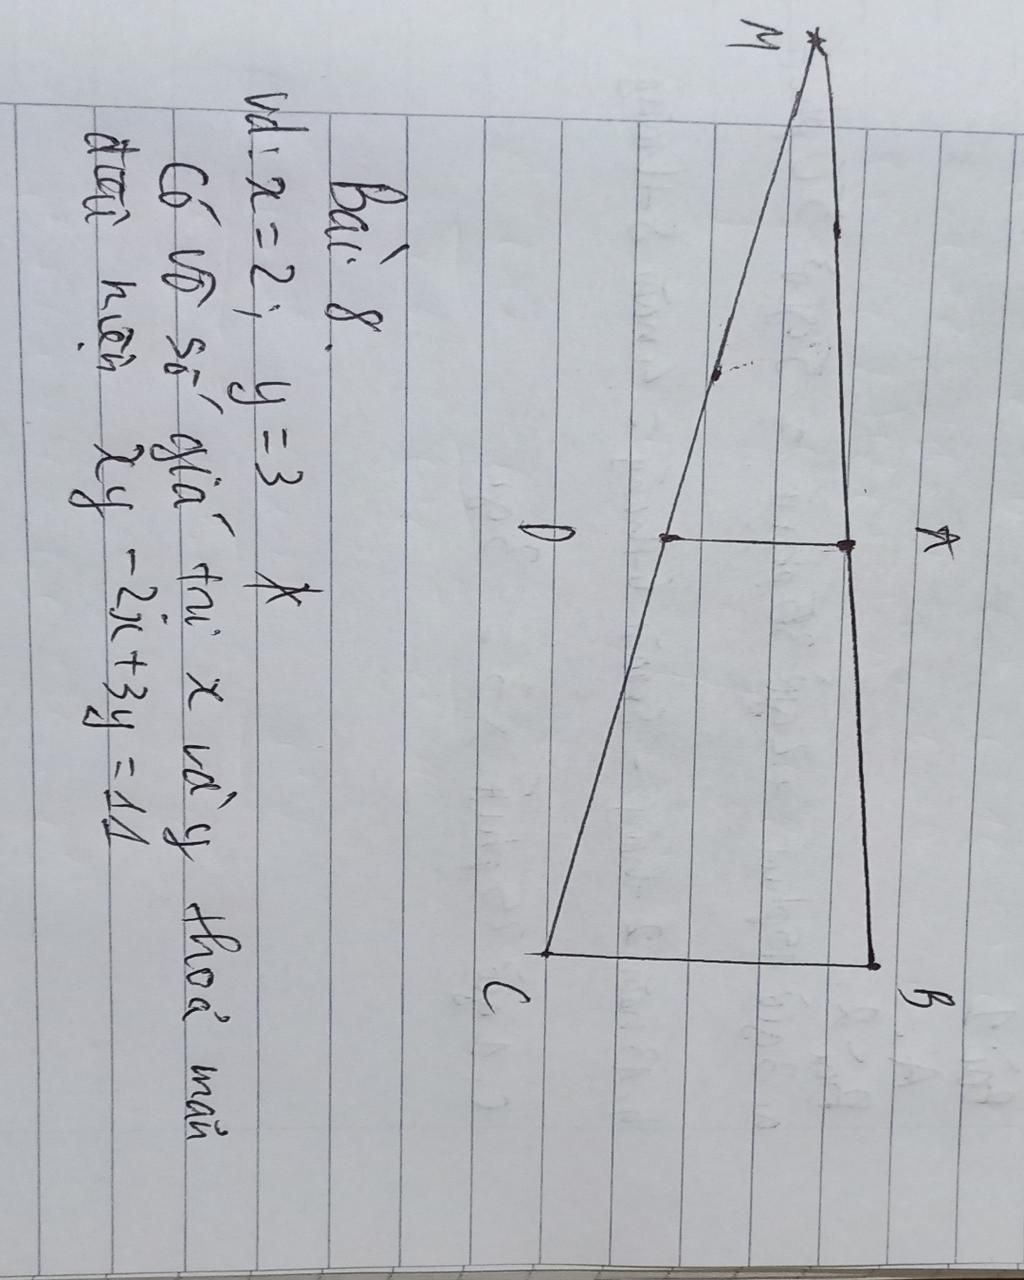 M
A
B
D
C
Bài 8.
vd: x = 2; y = 3
Có vô số giá trị x và y thoả mãn
xy - 2x + 3y = 11